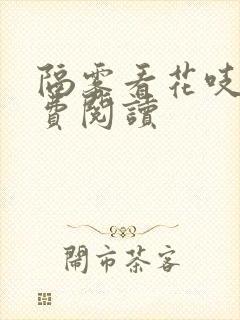 隔雾看花吱
费閱讀
閙市茶客